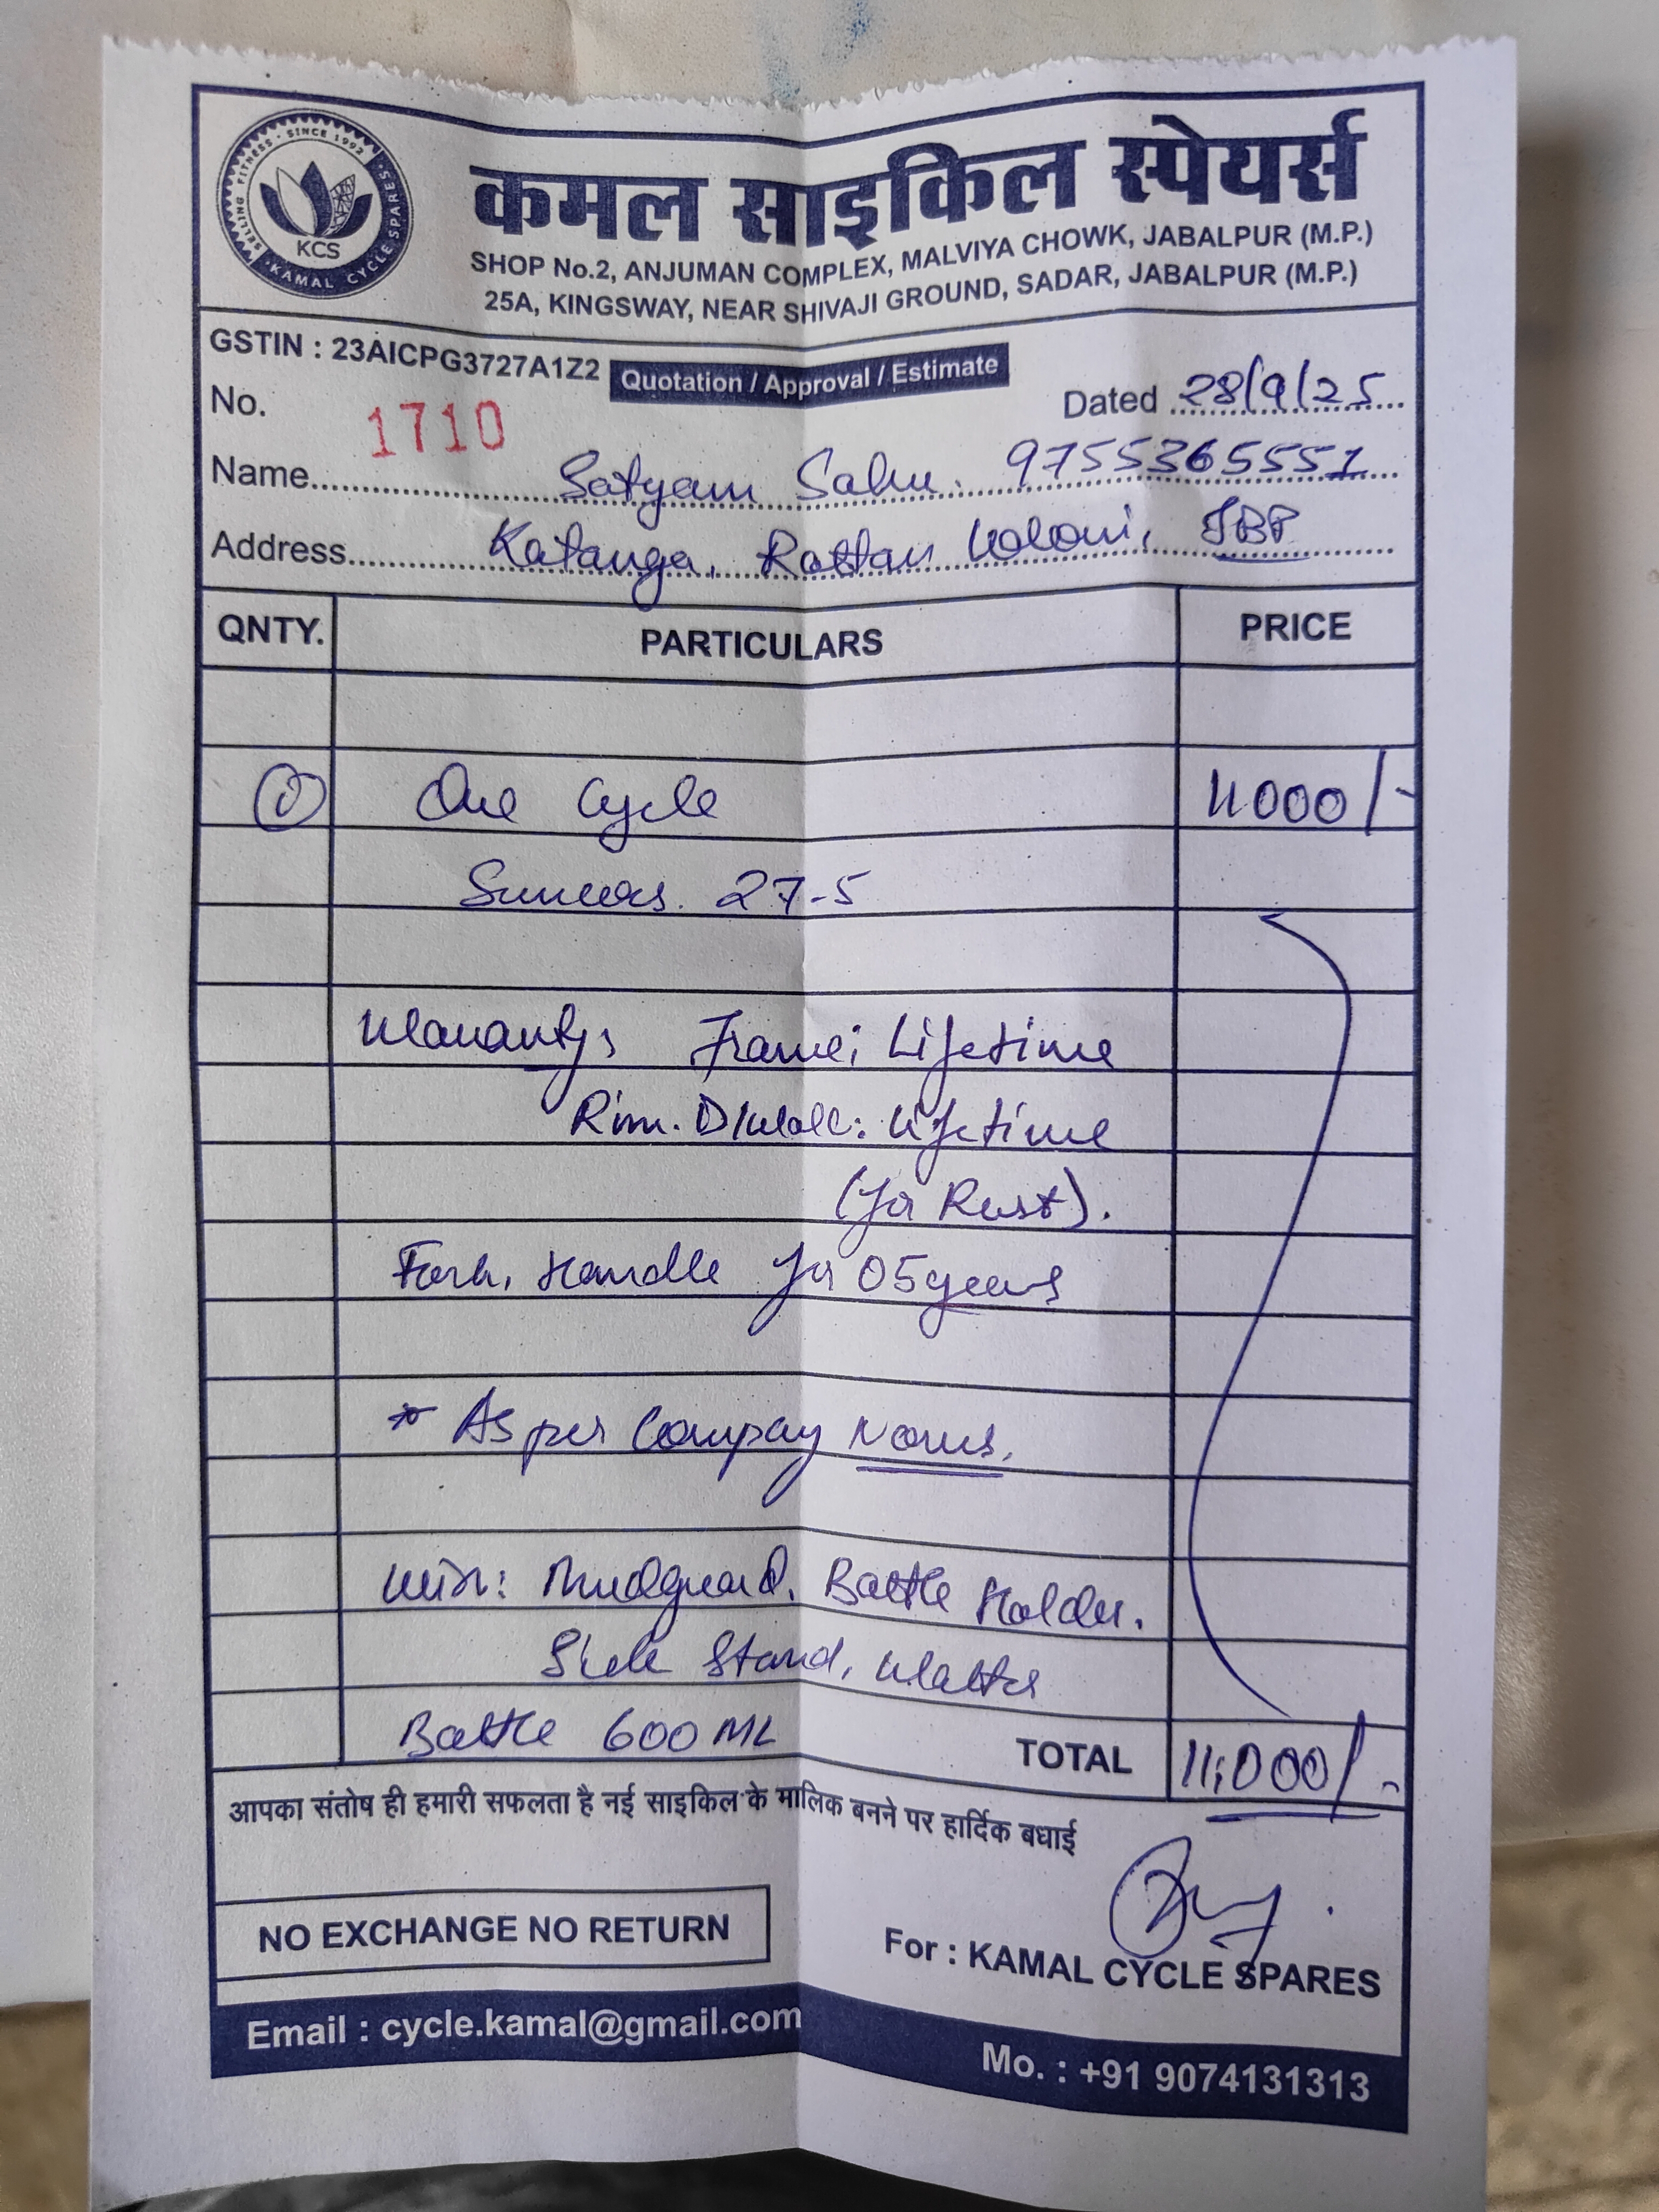 SELLING FITNESS · SINCE 1992
KCS
· KAMAL CYCLE SPARES ·
कमल साइकिल स्पेयर्स
SHOP No.2, ANJUMAN COMPLEX, MALVIYA CHOWK, JABALPUR (M.P.)
25A, KINGSWAY, NEAR SHIVAJI GROUND, SADAR, JABALPUR (M.P.)
GSTIN : 23AICPG3727A1Z2 Quotation / Approval / Estimate
No. 1710 Dated 28/9/25
Name Satyam Sahu. 9755365551
Address Katanga, Rattan Coloni, JBP
QNTY. PARTICULARS PRICE
One Cycle 11000/-
27-5
Warranty: Frame: Lifetime
Rim. D/Wall: Lifetime
(for Rust).
Fork, Handle for 05 years
* As per Compay Norms.
With: Mudguard, Bottle Holder.
Side Stand, Watter
Bottle 600 ML TOTAL 11,000/-
आपका संतोष ही हमारी सफलता है नई साइकिल के मालिक बनने पर हार्दिक बधाई
NO EXCHANGE NO RETURN
For : KAMAL CYCLE SPARES
Email : cycle.kamal@gmail.com
Mo. : +91 9074131313